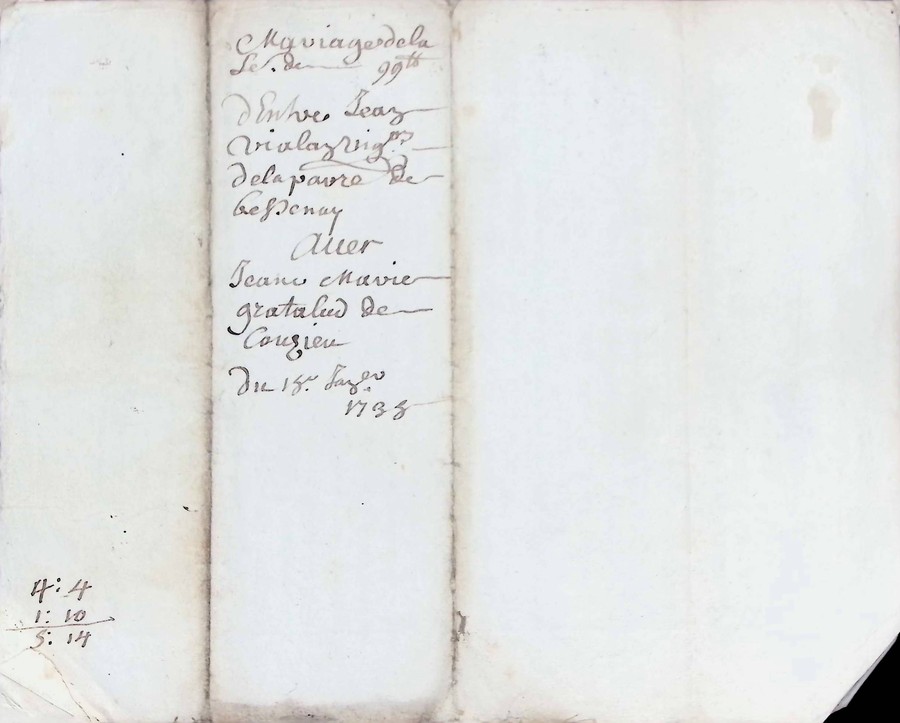 Mariage de la
So.e de 99tt
d'Entre Jean
vialay vig.on
de la parre de
bessenay
Avec
Jeane Marie
grataloud de
Couzieu
Du 18e Janer
1738
4: 4
1: 10
5: 14